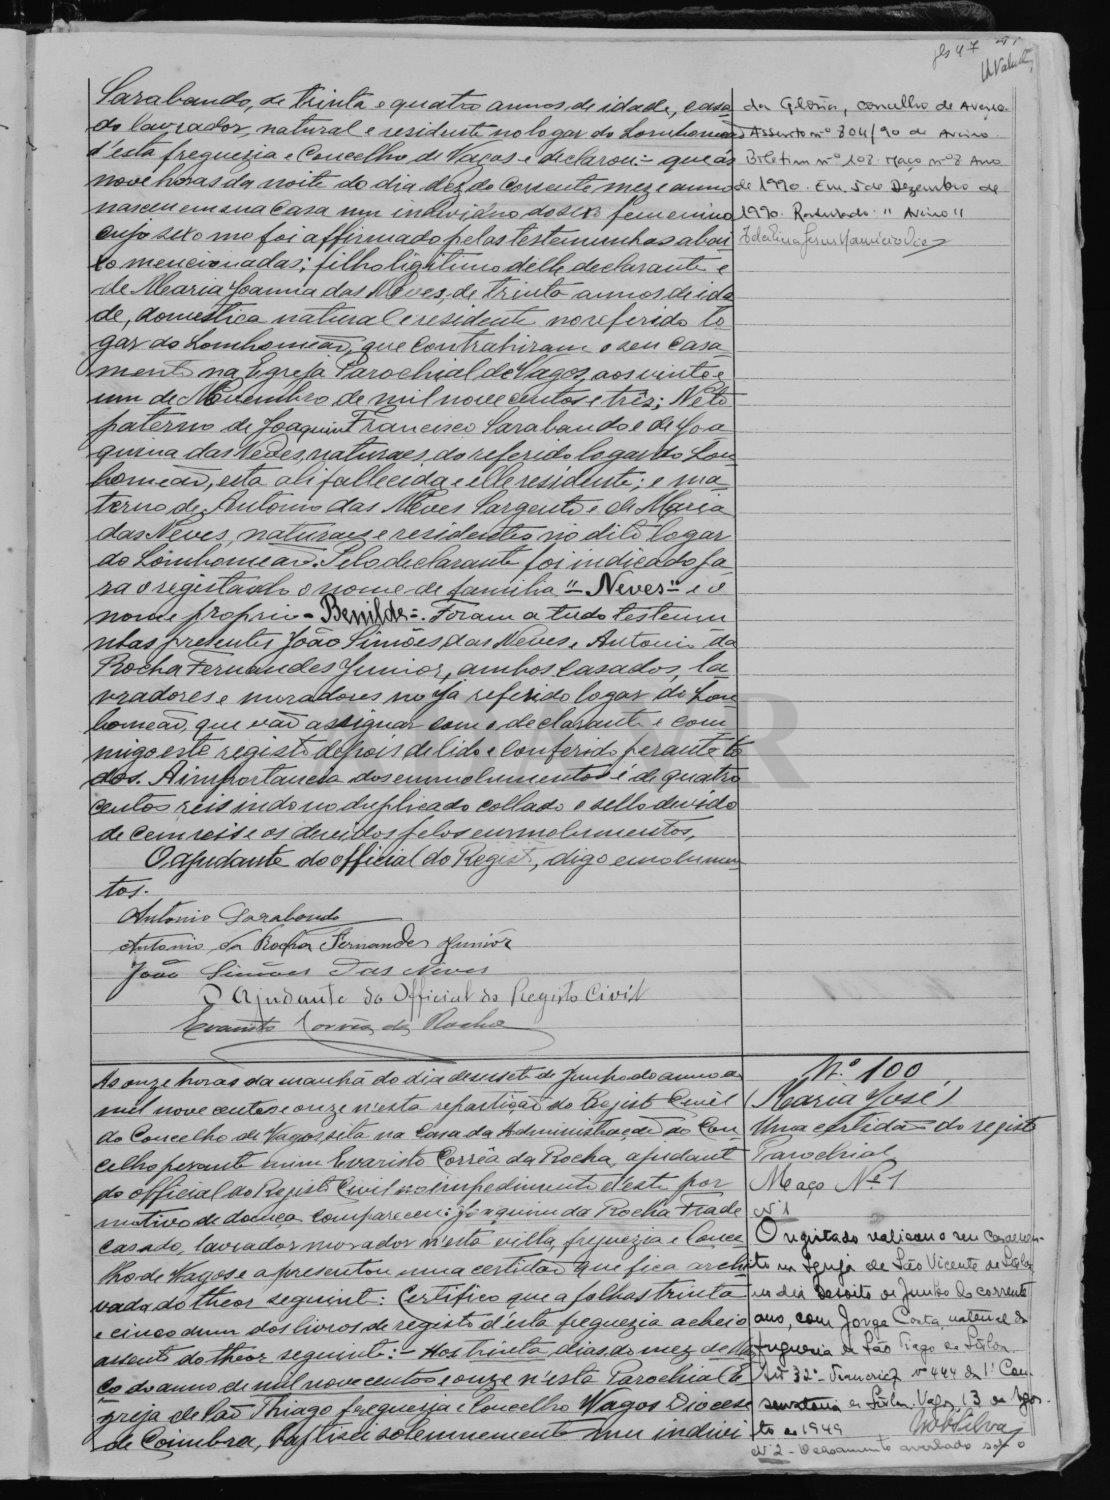 fls 47
Sarabando, de trinta e quatro annos de idade, casa
do lavrador, natural e residente no logar do Lombomeão
d'esta freguezia e Concelho de Vagos e declarou:- que ás
nove horas da noite do dia dez do corrente mez e anno
nasceu em sua casa um individuo do sexo femenino
cujo sexo me foi affirmado pelas testemunhas abai
xo mencionadas; filho ligitimo d'elle declarante e
de Maria Joanna das Neves, de trinta annos de ida
de, domestica natural e residente no referido lo
gar do Lombomeão, que contrahiram o seu casa
mento na Egreja Parochial de Vagos, aos vinte e
um de Novembro de mil nove centos e trez; Neto
paterno de Joaquim Francisco Sarabando e de Joa
quina das Neves, naturaes do referido logar do Lom
bomeão, esta ali fallecida e elle residente; e ma
terno de Antonio das Neves Sargento e de Maria
das Neves, naturaes e residentes no dito logar
do Lombomeão. Pelo declarante foi indicado pa
ra o registando o nome de familia "- Neves -" e o
nome proprio - Benilde -. Foram a tudo testemu
nhas presentes João Simões das Neves e Antonio da
Rocha Fernandes Junior, ambos casados, la
vradores e moradores no já referido logar do Lom
bomeão, que vão assignar com o declarante e com
migo este registo depois de lido e conferido perante to
dos. A importancia dos emmolumentos é de quatro
centos reis indo no duplicado collado o sello devido
de cem reis e os devidos pelos emmolumentos,
O ajudante do official do Registo, digo emolumen
tos.
Antonio Sarabando
Antonio da Rocha Fernandes Junior
João Simões das Neves
O Ajudante do Official do Registo Civil
Evaristo Corrêa da Rocha
da Glória, concelho de Aveiro.
Assento nº 804/90 de Aveiro.
Boletim nº 108. Maço nº 8 Ano
de 1990. Em, 5 de Dezembro de
1990. Rasurado: "Aveiro"
Ás onze horas da manhã do dia desesete de Junho do anno de
mil nove centos e onze n'esta repartição do Registo Civil
do Concelho de Vagos, sita na Casa da Administração do Con
celho perante mim Evaristo Corrêa da Rocha, ajudante
do official do Registo Civil no impedimento d'este por
motivo de doença compareceu: Joaquim da Rocha Frade
casado, lavrador morador n'esta villa, freguezia e Conce
lho de Vagos e apresentou uma certidão que fica archi
vada do theor seguinte: Certifico que a folhas trinta
e cinco d'um dos livros de registo d'esta freguezia achei o
assento do theor seguinte:- Aos trinta dias do mez de Mar
ço do anno de mil novecentos e onze n'esta Parochial E
greja de São Thiago freguezia e Concelho Vagos Diocese
de Coimbra, baptisei solemnemente um indivi
N.º 100
(Maria José)
Uma certidão do registo
Parochial
Maço Nº 1
Nº 1
O registado realizou o seu casamen-
to na Igreja de São Vicente de Lisboa
no dia dezoito de Junho do corrente
ano, com Jorge Costa, natural da
freguesia de São Tiago de Lisboa.
nº 444 da 1ª Con
servatoria de Lisboa. Vagos, 13 de Agos-
to de 1949
Nº 2 - O casamento averbado sob o